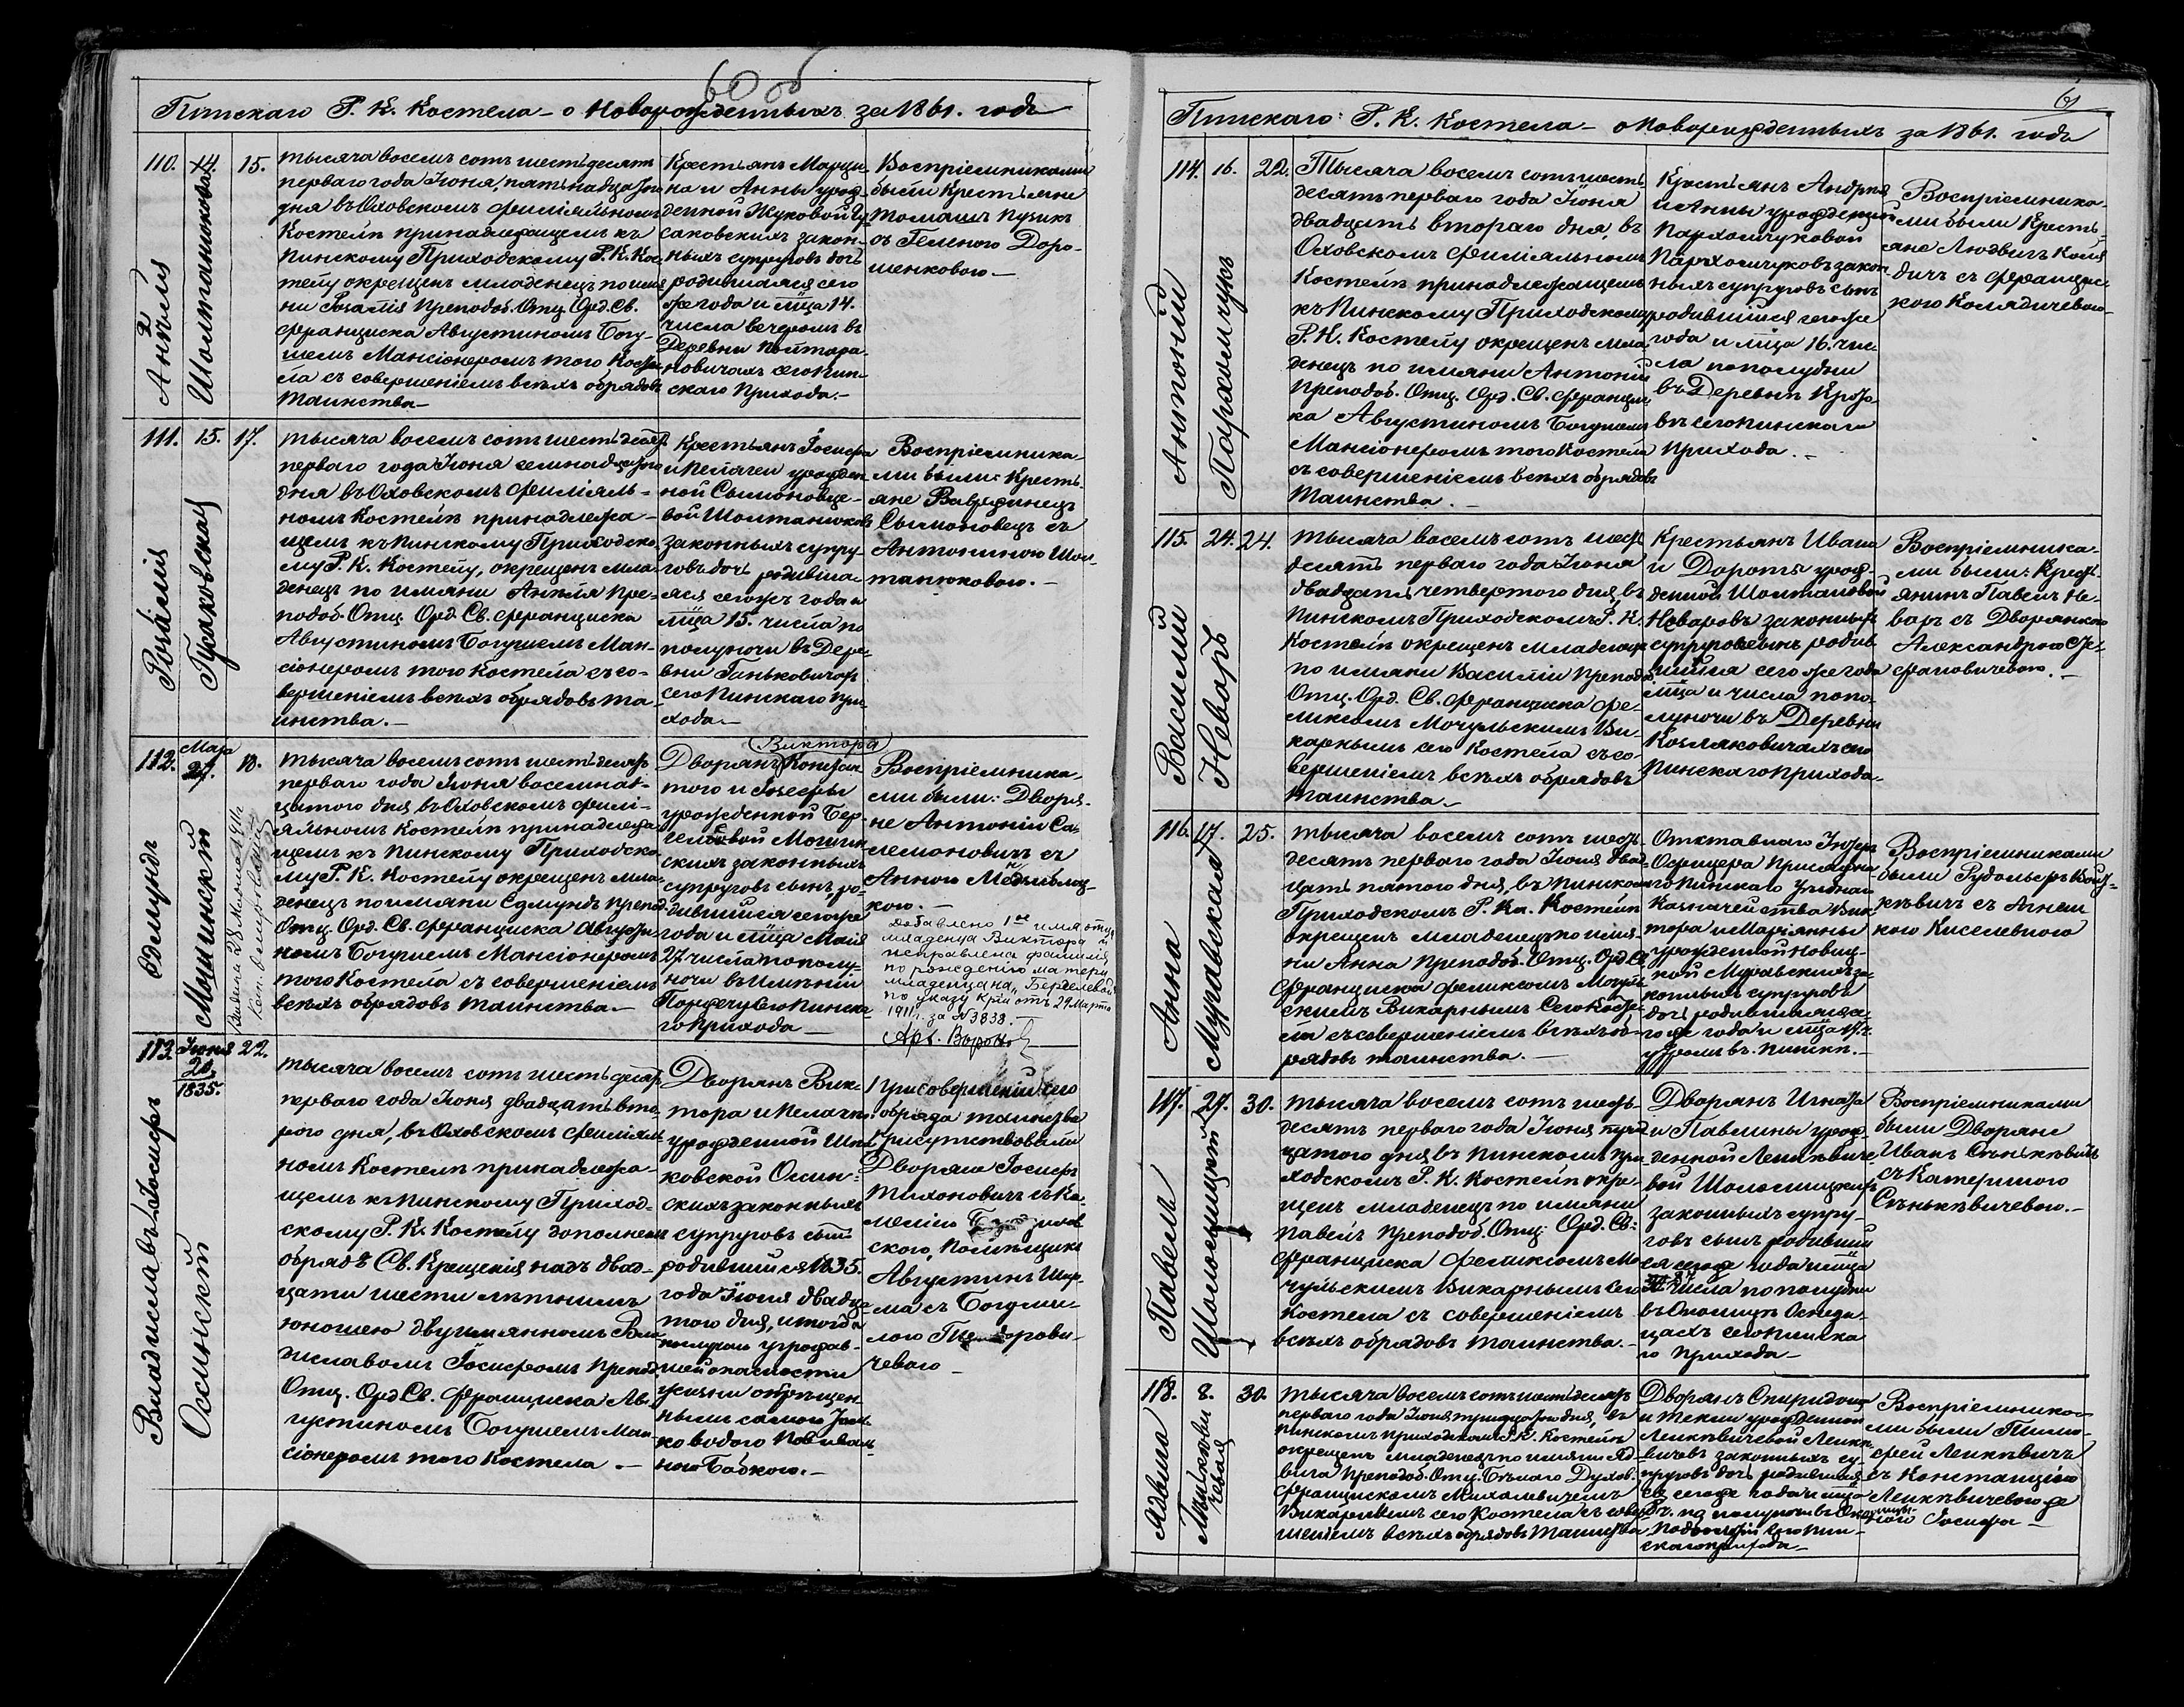 60 об
Пинскаго Р. К. Костела – о новорожденныхъ за 1861. годъ
110. 14. 15.
Анѣля
Шолтанюкова
тысяча восемъ сотъ шестьдесятъ
перваго года Іюня, пятьнадцатаго
дня въ Оховскомъ филіяльномъ
Костелѣ принадлежащемъ къ
Пинскому Приходскому Р. К. Кос-
телу окрещенъ младенецъ по имя
ни Розалія Преподоб. Отц. Орд. Св.
Франциска Августиномъ Богу-
шемъ Мансіонеромъ того Косте
ла съ совершеніемъ всѣхъ обрядовъ
таинства –
Крестьянъ Марци
на и Анны урож
денной Жуковой Гу
саковскихъ закон-
ныхъ супруговъ дочь
родившаяся сего
же года и мѣца 14.
числа вечеромъ въ
Деревни Полтора-
новичахъ сего Пин-
скаго Прихода. –
Воспріемниками
были Крестьяне
Томашъ Пузикъ
съ Геленою Доро-
шенковою –
111. 15. 17.
Розалія
Гусаковская
тысяча восемъ сотъ шестьдесятъ
перваго года Іюня семнадцатаго
дня въ Оховскомъ филіяль-
номъ Костелѣ принадлежа-
щемъ къ Пинскому Приходско-
му Р. К. Костелу, окрещенъ мла-
денецъ по имяни Анѣля Пре-
подоб. Отц. Орд. Св. Франциска
Августиномъ Богушемъ Ман-
сіонеромъ того Костела съ со-
вершеніемъ всѣхъ обрядовъ та-
инства. –
Крестьянъ Іосифа
и Пелагеи урожден
ной Сымоновце-
вой Шолтанюковъ
законныхъ супру-
говъ дочь родивша-
яся сегожъ года и
мѣца 15. числа по
полуночи въ Дере
вни Ганьковичахъ
сего Пинскаго При
хода –
Воспріемника-
ми были: Кресть
яне Вавржинецъ
Сымоновецъ съ
Антониною Шол-
танюковою. –
112. Мая 27. 18.
Эдмундъ
Мошинскій
тысяча восемъ сотъ шестьдесятъ
перваго года Іюня восемнад-
цатого дня въ Оховскомъ фили-
яльномъ Костелѣ принадлежа
щемъ къ Пинскому Приходско-
му Р. К. Костелу окрещенъ мла-
денецъ по имяни Едмундъ препод
Отц. Орд. Св. Франциска Августи
номъ Богушемъ Мансіонеромъ
того Костела съ совершеніемъ
всѣхъ обрядовъ таинства. –
Виктора
Дворянъ
того и Іозефы
урожденной Бер
вой Мошин
скихъ законныхъ
супруговъ сынъ, ро-
дившійся сего же
года и мѣца Маія
27 числа по полу-
ночи въ Имѣніи
сего Пинска
го Прихода –
Воспріемника-
ми были: Дворя-
не Антоній Са-
лемоновичъ съ
Анною
кою. –
Добавлено 1ое имя отца
младенца Виктора и
исправлена фамилія
по рожденію матери
младенца на „Берделевой
по указу Кріи отъ 29 Марта
1911 г. за №3838. –
113. Іюня 20. 1835. 22.
Владиславъ-Іосифъ
Осинскій
тысяча восемъ сотъ шестьдесятъ
перваго года Іюня двадцать вто-
рого дня, въ Оховскомъ филіяль
номъ Костелѣ принадлежа-
щемъ къ Пинскому Приход-
скому Р. К. Костелу дополненъ
обрядъ Св. Крещенія надъ двад-
цати шести лѣтнимъ
юношею двуимянномъ Вла
диславомъ Іосифомъ препод.
Отц. Орд. Св. Франциска Ав-
густиномъ Богушемъ Ман-
сіонеромъ того Костела. –
Дворянъ Вик-
тора и Пелагіи
урожденной
ковской Осин-
скихъ законныхъ
супруговъ сынъ
родившійся 1835.
года Іюня двадца
таго дня, и тогда
по случаю угрожав-
шей опасности
жизни окрещен
ный самою толь
ко водою повиваль-
ною Бабкою. –
При совершеніи сего
обряда таинства
присутствовали
Дворяне Іосифъ
Тихоновичъ съ Ка-
меліею
скою, Помѣщикъ
Августинъ Шир-
ма съ Богуми-
лою
чевою –
61
Пинскаго Р. К. Костела – о новорожденныхъ за 1861. годъ
114. 16. 22.
Антоній
Пархомчукъ
Тысяча восемъ сотъ шесть
десятъ перваго года Іюня
двадцать втораго дня, въ
Оховскомъ филіяльномъ
Костелѣ принадлежащемъ
къ Пинскому Приходскому
Р. К. Костелу окрещенъ мла
денецъ по имяни Антоній
Преподоб. Отц. Орд. Св. Францис
ка Августиномъ Богушемъ
Мансіонеромъ того Костела
съ совершеніемъ всѣхъ обрядовъ
таинства. –
Крестьянъ Андрея
и Анны урожденной
Пархомчуковой
Пархомчуковъ закон
ныхъ супруговъ сынъ
родившійся сего же
года и мѣца 16. чис-
ла по полудни
въ Деревнѣ Крот
въ сего Пинскаго
Прихода. –
Воспріемника-
ми были Кресть-
яне Людвигъ Коля
дичъ съ Францис-
кою Колядичевою –
115. 24. 24.
Василій
Неваръ
тысяча восемъ сотъ шест
десятъ перваго года Іюня
двадцать четвертого дня, въ
Пинскомъ Приходскомъ Р. К.
Костелѣ окрещенъ младенецъ
по имяни Василій Преподоб
Отц. Орд. Св. Франциска Фе-
ликсомъ Мочульскимъ Ви-
карнымъ сего Костела съ со-
вершеніемъ всѣхъ обрядовъ
таинства –
Крестьянъ Ивана
и Дороты урож-
денной Шолтановой
Неваровъ законныхъ
супруговъ сынъ родив
шійся сего же года
мѣца и числа попо-
луночи въ Деревни
Козляковичахъ сего
Пинскаго Прихода –
Воспріемника-
ми были: Кресть-
янинъ Павелъ Не-
варъ съ Дворянкою
Александрою Сте-
фановичевою. –
116. 17. 25.
Анна
Муравская
тысяча восемъ сотъ шесть
десятъ перваго года Іюня двад-
цать пятого дня, въ Пинскомъ
Приходскомъ Р. Ка. Костелѣ
окрещенъ младенецъ по имя-
ни Анна Преподоб. Отц. Орд. Св
Франциска Феликсомъ Мочуль
скимъ Викарнымъ Сего Косте-
ла съ совершеніемъ всѣхъ об-
рядовъ таинства. –
Откставного Унтеръ
Офицера Присяжна
го Пинскаго Уѣзднаго
Казначейства Вик-
тора и Маріянны
урожденной Новиц-
кой Муравскихъ за-
конныхъ супруговъ
дочь родившаяся се-
го же года и мѣца 17. ч.
утромъ въ Пинскѣ. –
Воспріемниками
были Рудольфъ Вой
кѣвичъ съ Агнеш
кою Киселевною
117. 27. 30.
Павелъ
Шоломицкій
тысяча восемъ сотъ шесть-
десятъ перваго года Іюня трид
цатого дня въ Пинскомъ При
ходскомъ Р. К. Костелѣ окре-
щенъ младенецъ по имяни
Павелъ Преподоб. Отц. Орд. Св.
Франциска Феликсомъ Мо-
чульскимъ Викарнымъ Сего
Костела съ совершеніемъ
всѣхъ обрядовъ таинства. –
Дворянъ Игната
и Павлины урож-
денной Ленкѣвиче-
вой Шоломицкихъ
законныхъ супру-
говъ сынъ родивший
ся сегоже года и мѣца
27 числа по полудни
въ
цахъ сего Пинска
го Прихода –
Воспріемниками
были Дворяне
Иванъ Сѣнькѣвичъ
съ Катериною
Сѣнькѣвичевою. –
118. 8. 30.
Ядвига
Ленкѣвичевая
тысяча восемъ сотъ шестьдесятъ
перваго года Іюня тридцатого дня, въ
Пинскомъ приходскомъ Р. К. Костелѣ
окрещенъ младенецъ по имяни Яд-
вига Преподоб. Отц. Бѣлаго Духов.
Францискомъ Михалевичемъ
Викарнымъ сего Костела съ совер
шеніемъ всѣхъ обрядовъ таинства
Дворянъ Спиридона
и Теклы урожденной
Ленкѣвичевой Ленкѣ-
вичевъ законныхъ су-
пруговъ дочь родившая
ся сегоже года и мѣца
8 ч. по полуночи въ
сего Пин-
скаго прихода –
Воспріемника-
ми были Тимо-
фей Ленкѣвичъ
съ Констанціею
Ленкѣвичевою же
ною Іосифа –